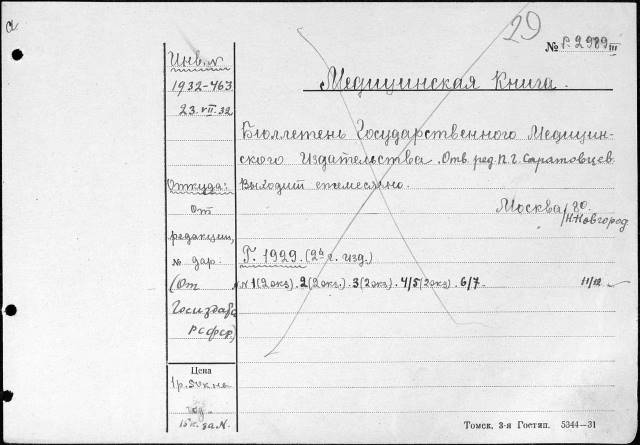 29
№ Р. 2989 III
Инв. N
1932-463
23. VII. 32
Медицинская Книга.
Бюллетень Государственного Медицин-
ского Издательства. Отв. ред. П. Г. Саратовцев.
Выходит ежемесячно.
Москва/80.
Н-Новгород
Откуда:
от
редакции,
№ дар.
(От
Госиздата
РСФСР)
Г. 1929. (2й г. изд.)
N 1 (2 экз). 2 (2 экз.). 3 (2 экз). 4/5 (2 экз). 6/7. 11/12.
Цена
1 р. 50 к. на
год.
15 к. за N.
Томск, 3-я Гостип. 5344—31